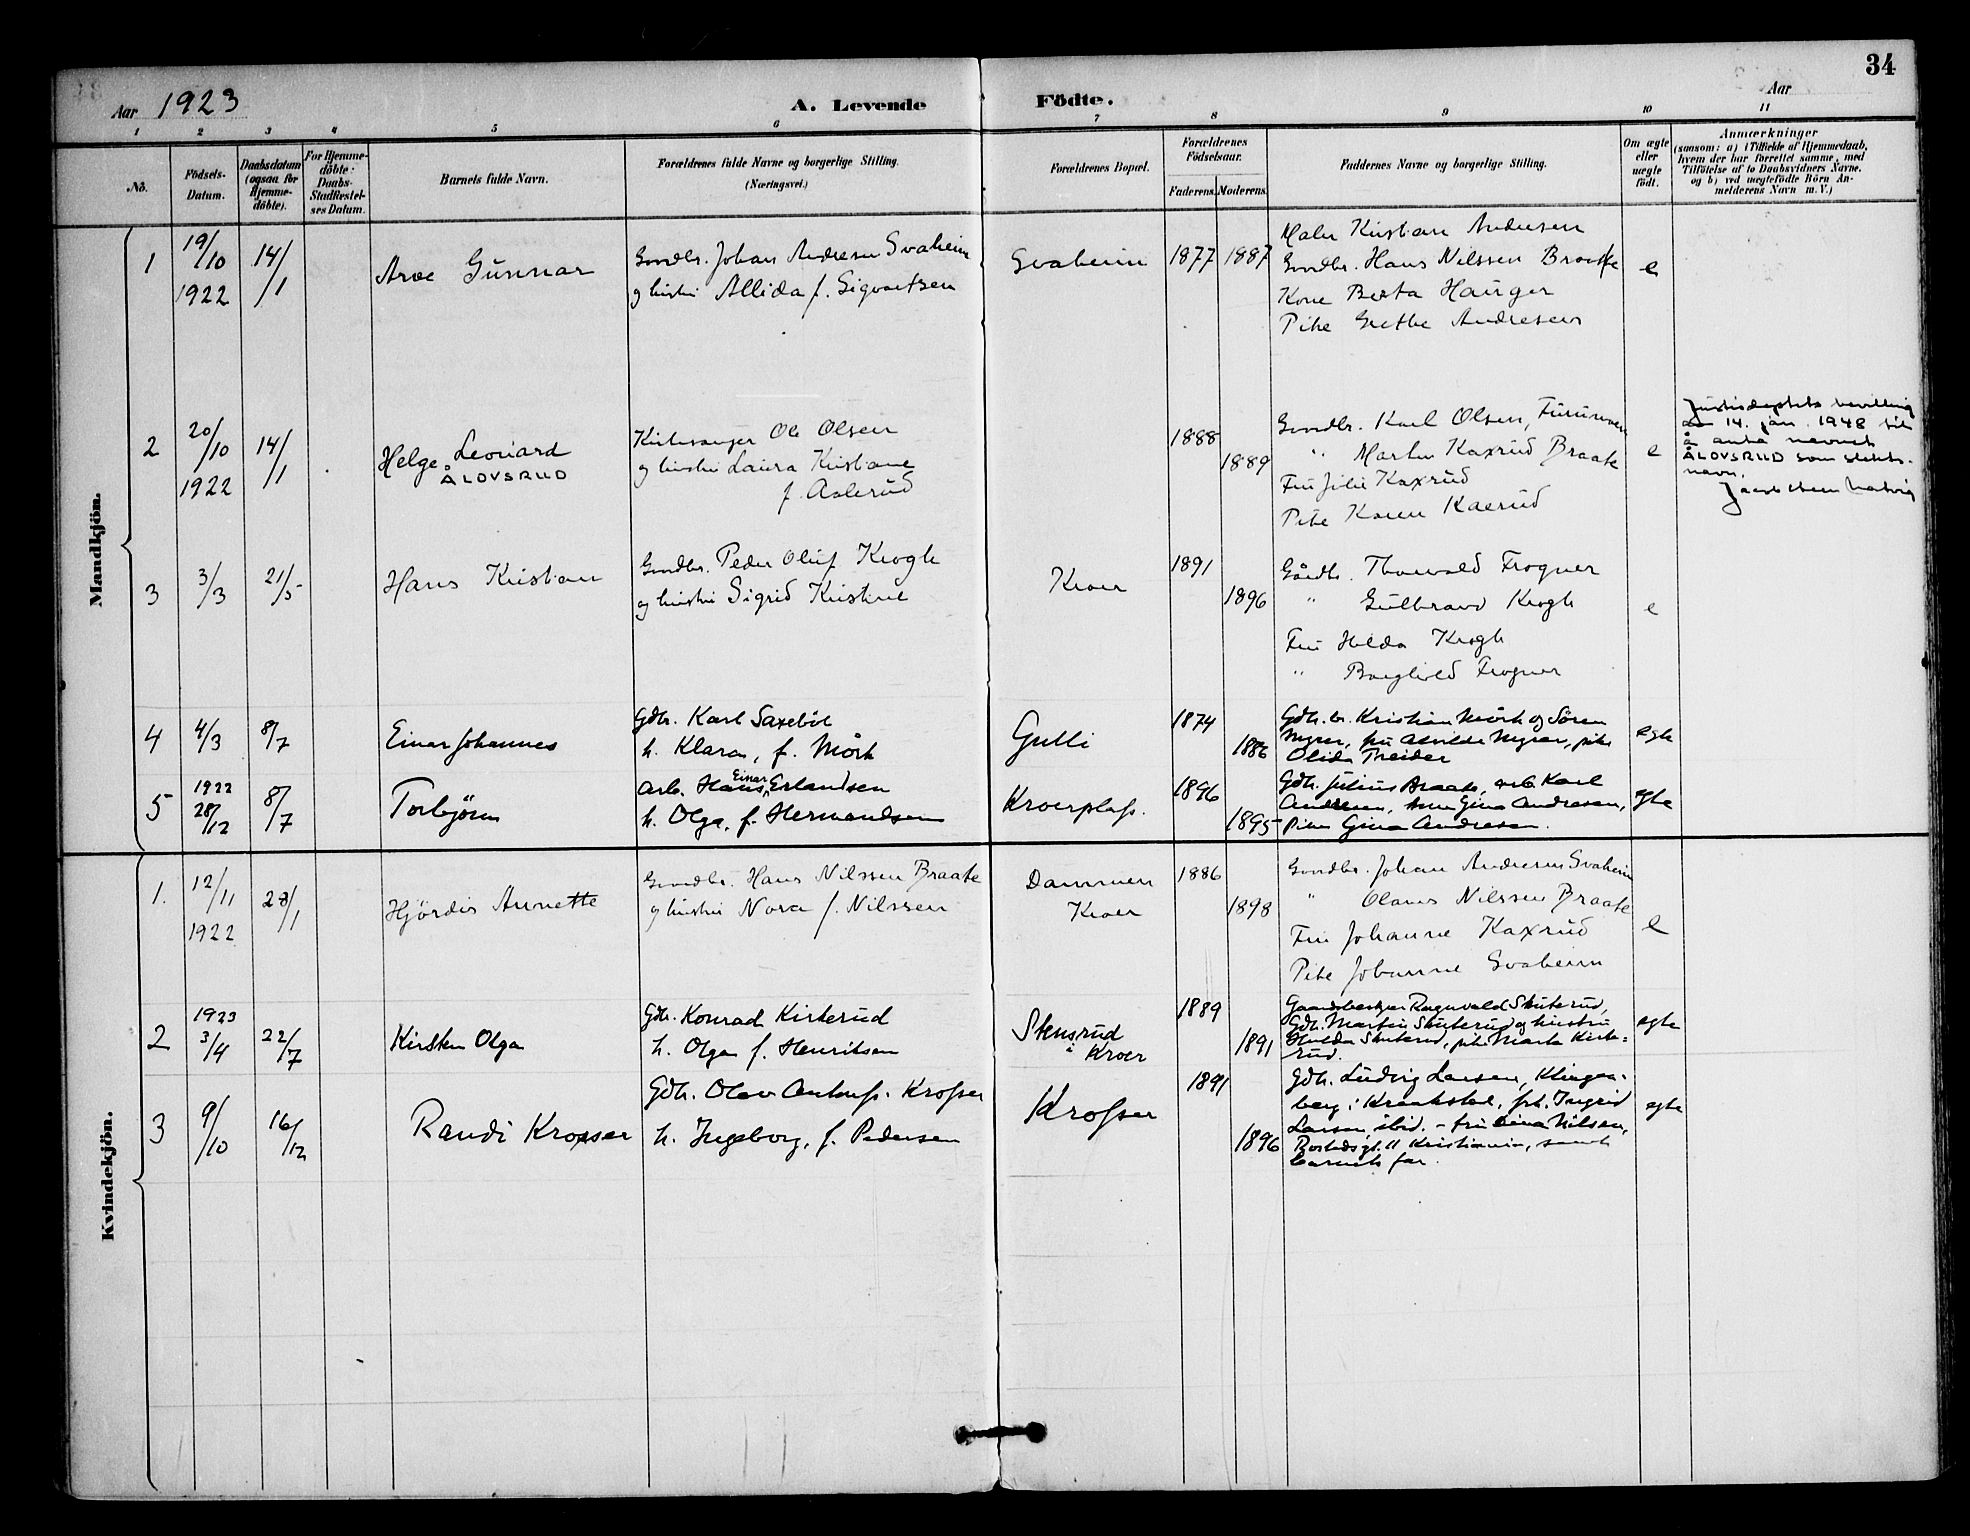 34
Aar 1923
A. Levende Födte.
Aar
1 2 3 4 5 6 7 8 9 10 11
No.
Födsels-Datum.
Daabsdatum (ogsaa for Hjemme-döbte).
For Hjemme-döbte: Daabs-Stadfæstel-ses Datum.
Barnets fulde Navn.
Forældrenes fulde Navne og borgerlige Stilling. (Næringsvei.)
Forældrenes Bopæl.
Forældrenes Födselsaar.
Faderens. Moderens.
Faddernes Navne og borgerlige Stilling.
Om ægte eller uægte födt.
Anmærkninger
(saasom: a) i Tilfælde af Hjemmedaab,
hvem der har forrettet samme, med
Tilföielse af to Daabsvidners Navne.
og b) ved uægtefödte Börn An-
melderens Navn m. V.)
Mandkjön.
1 19/10 1922 14/1 Arve Gunnar
Gvndbr. Johan Andresen Svaheim
og hustru Allida f. Sigvartsen
Svaheim 1877 1887
Maler Kristian Andersen
Gvndbr. Hans Nilssen Braate
Kone Berta Hauger
Pike Grethe Andresen
e
2 20/10 1922 14/1 Helge Leonard
ÅLOVSRUD
Kirkesanger Ole Olsen
og hustru Laura Kristiane
f. Aalerud
1888 1889
Gvndbr. Karl Olsen,
" Martin Kaxrud Braate
Fru Julie Kaxrud
Pike Karen Kaxrud
e
Justisdeptets bevilling
av 14. jan. 1948 til
å anta navnet
ÅLOVSRUD som slekts-
navn.
3 3/3 21/5 Hans Kristian
Gvndbr. Peder Oluf Krogh
og hustru Sigrid Kristine
Kroer 1891 1896
Gårdbr. Thorvald Frogner
" Gulbrand Krogh
Fru Hilda Krogh
" Borghild Frogner
e
4 4/3 8/7 Einar Johannes
Gdbr. Karl Saxebøl
h. Klara, f. Mörk
Gulli 1874 1886
Gdbr. Kristian Mörk og Sören
Myrer, fru Alvilde Myrer, pike
Olida Treider
egte
5 1922 28/12 8/7 Torbjörn
Arb. Hans Einar Erlandsen
h. Olga, f. Hermandsen
Kroerplass. 1896 1895
Gdbr. Julius Braate, arb. Karl
Andresen, kone Gina Andresen,
Pike Gina Andresen.
egte
Kvindekjön.
1. 12/11 1922 28/1 Hjördis Annette
Gvndbr. Hans Nilssen Braate
og hustru Nora f. Nilssen
Dammen
Kroer
1886 1898
Gvndbr. Johan Andresen Svaheim
" Olaus Nilssen Braate
Fru Johanne Kaxrud
Pike Johanne Svaheim
e
2 1923 3/4 22/7 Kirsten Olga
Gdbr. Konrad Kirkerud
h. Olga f. Henriksen
Stensrud
i Kroer
1889 1891
Gaardbestyrer Ragnvald Skuterud,
Gdbr. Martin Skuterud og hustru
Hulda Skuterud, pike Marta Kirke-
rud.
egte
3 9/10 16/12 Randi Krosser
Gdbr. Olav Krosser
h. Ingeborg, f. Pedersen
Krosser 1891 1896
Gdbr. Ludvig Larsen, Klingen-
berg i Kraakstad, frk. Ingrid
Larsen ibid. - fru Nilsen,
11 Kristiania, samt
barnets far.
egte